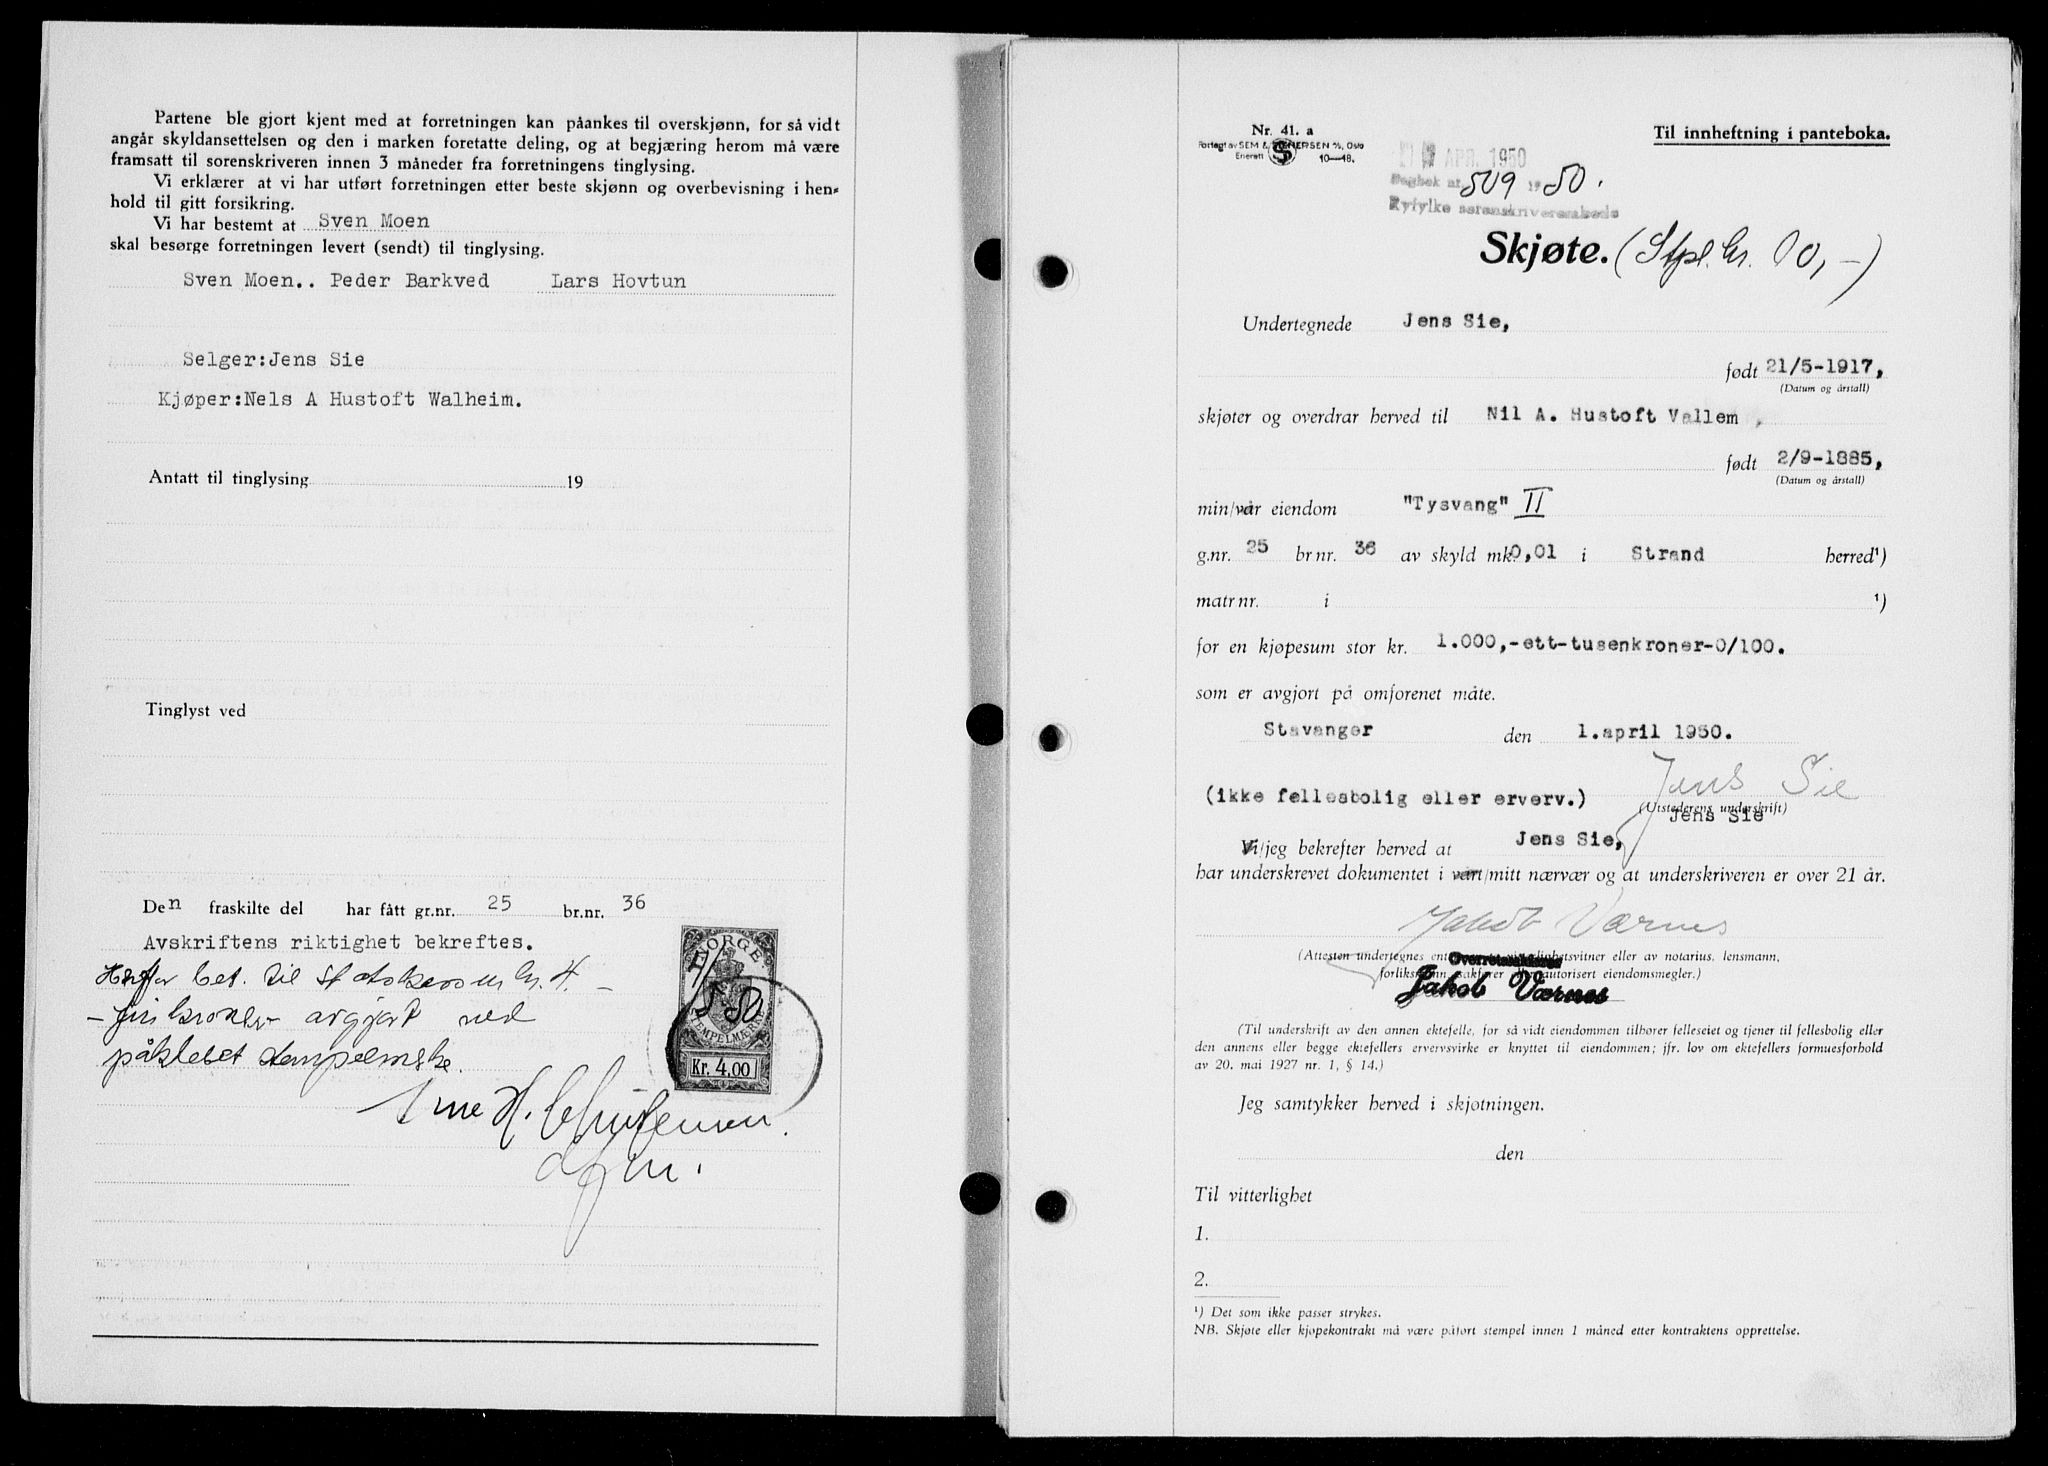 Partene ble gjort kjent med at forretningen kan påankes til overskjønn, for så vidt
angår skyldansettelsen og den i marken foretatte deling, og at begjæring herom må være
framsatt til sorenskriveren innen 3 måneder fra forretningens tinglysing.
Vi erklærer at vi har utført forretningen etter beste skjønn og overbevisning i hen-
hold til gitt forsikring.
Vi har bestemt at Sven Moen
skal besørge forretningen levert (sendt) til tinglysing.
Sven Moen.. Peder Barkved Lars Hovtun
Selger:Jens Sie
Kjøper:Nels A Hustoft Walheim.
Antatt til tinglysing 19
Tinglyst ved
Den fraskilte del har fått gr.nr. 25 br.nr. 36
Avskriftens riktighet bekreftes.
bet. til statskassen kr. 4.-
-firekroner- avgjort ved
påklebet stempelmerke.
NORGE
STEMPELMERKE
Kr. 4,00
Nr. 41. a
Forlagt av SEM & STENERSEN A/S, Oslo
Enerett 10-48.
Til innheftning i panteboka.
APR. 1950
Dagbok nr 509 1950.
Ryfylke sorenskriverembede
Skjøte. (Stpl. kr. 10,-)
Undertegnede Jens Sie,
født 21/5-1917,
(Datum og årstall)
skjøter og overdrar herved til Nil A. Hustoft Vallem,
født 2/9-1885,
(Datum og årstall)
min/vår eiendom "Tysvang" II
g.nr. 25 br nr. 36 av skyld mk. 0,01 i Strand herred¹)
matr nr. i ¹)
for en kjøpesum stor kr. 1.000,-ett-tusenkroner-0/100.
som er avgjort på omforenet måte.
Stavanger den 1.april 1950.
Jens Sie
(ikke fellesbolig eller erverv.) (Utstederens underskrift)
Jens Sie
Vi/jeg bekrefter herved at Jens Sie,
har underskrevet dokumentet i vårt/mitt nærvær og at underskriveren er over 21 år.
Jakob Værnes
(Attesten undertegnes enten av to vitterlighetsvitner eller av notarius, lensmann,
Overrettssakfører
forliksmann, sakfører eller autorisert eiendomsmegler.)
Jakob Værnes
(Til underskrift av den annen ektefelle, for så vidt eiendommen tilhører felleseiet og tjener til fellesbolig eller
den annens eller begge ektefellers ervervsvirke er knyttet til eiendommen; jfr. lov om ektefellers formuesforhold
av 20. mai 1927 nr. 1, § 14.)
Jeg samtykker herved i skjøtningen.
den
Til vitterlighet
1.
2.
¹) Det som ikke passer strykes.
NB. Skjøte eller kjøpekontrakt må være påført stempel innen 1 måned etter kontraktens opprettelse.